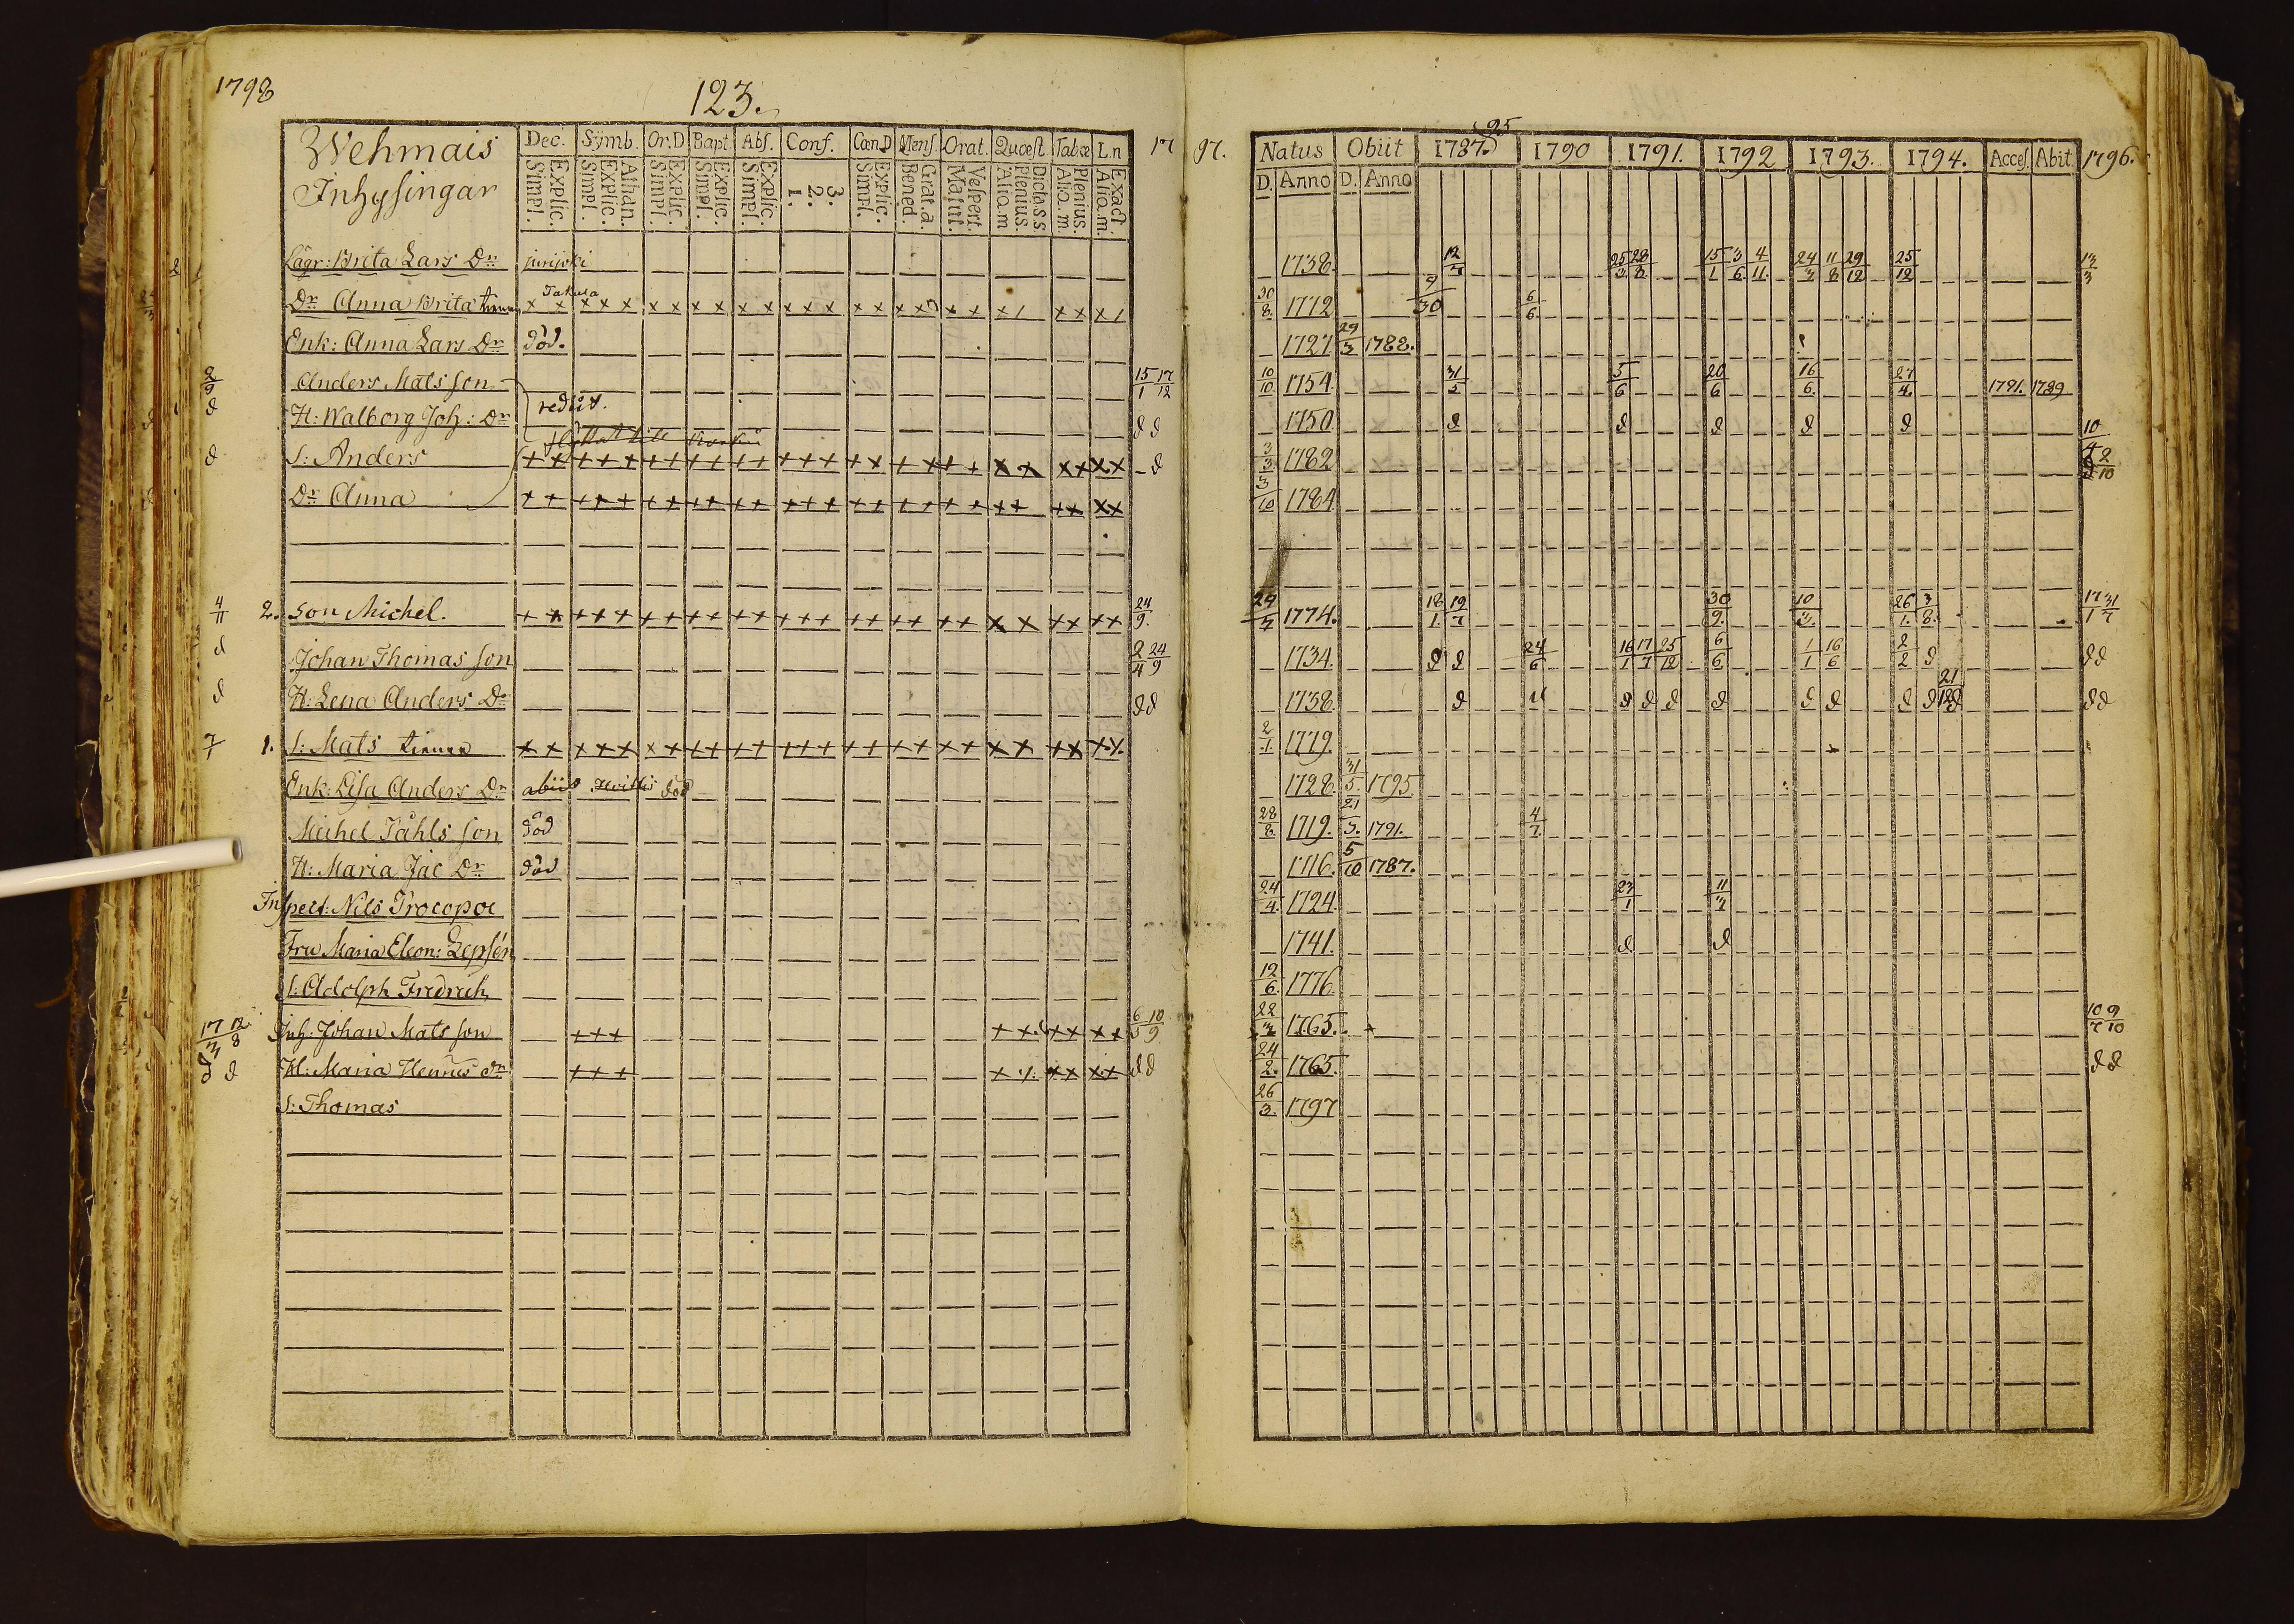 1798
123.
Wehmais
Inhysingar
Dec. Symb. Or.D Bapt. Abs. Conf. Cœn.D Mens. Orat. Quæst. Tabœ Ln 17
Simpl. Explic. Simpl. Explic. Athan. Simpl. Explic. Simpl. Explic. Simpl. Explic. 1. 2. 3. Simpl. Explic. Bened. Grat.a. Matut. Vespert. Alio.m Plenius. Dicta.s.s Alio.m. Plenius. Alio.m. Exact.
Lägr: Brita Lars Dr
Dr Anna Brita x x x x x x x x x x x x x x x x x x x x x x x x
Enk: Anna Lars Dr död.
2/9 Anders Mats son 15/1 17/12
d H: Walborg Joh: Dr rediit. d d
d S: Anders + + + + + + + + + + + + + + + + + + + + x x x x x x - d
Dr Anna + + + + + + + + + + + + + + + + + + + + + + + + x x
4/11 2. Son Michel. + + + + + + + + + + + + + + + + + + + + x x x x + + 24/9.
d Johan Thomas son 2/4 24/9
d H: Lena Anders Dr d d
7 1. S: Mats x x x x x x + + + + + + + + + + + + + x x x x x x x x
Enk: Lisa Anders Dr abiit död
Michel Påhls son död
H: Maria Jac Dr död
Inspect: Nils Procopoe
Fru Maria Eleon: Zepsén
S: Adolph Fredrich
Inh: Johan Mats son + + + x x x x x x 6/5 10/9
d d H: Maria Dr + + + x x x x x x d d
S: Thomas
97.
Natus Obiit 1787. 95 1790 1791. 1792 1793. 1794. Acces. Abit. 1796.
D. Anno D. Anno
1738. 12/7 25/3 28/8 15/1 3/6 4/11. 24 11/8 29/12 25/12 13/3
30/8 1772 30 6/6.
1727 29/3 1788.
10/10 1754. 31/5 5/6 20/6 16/6. 27/4. 1791. 1789
1750. d d d d d
3/3 1782 10/4 2/10
3/10 1784
24 1774. 18/1. 19/7 30/9. 10 26/1. 3/8. 17/1 31/7
1734. d d 24/6 16/1 17/7 25/12 6/6 1/1 16/6 2/2 d d d
1738. d d d d d d d d d 21/12 d d d
2/1 1779.
1728. 31/5. 1795.
28/8. 1719. 21/3. 1791. 4/7.
1716. 5/10 1787.
24/4. 1724. 23/1 11
1741. d d
12/6. 1776.
22 1765. 10/7 9/10
24/2. 1765. d d
26/3. 1797